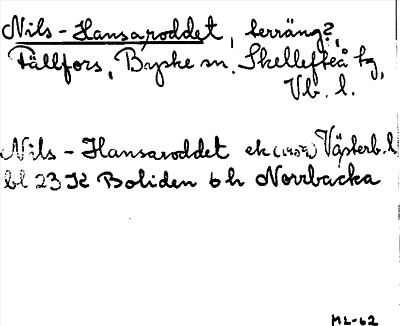 Nils-Hansaroddet, terräng?,
Fällfors, Byske sn. Skellefteå tg,
Vb. l.
Nils-Hansaroddet ek Västerb. l
bl 23 K Boliden 6 h Norrbacka
ML-62